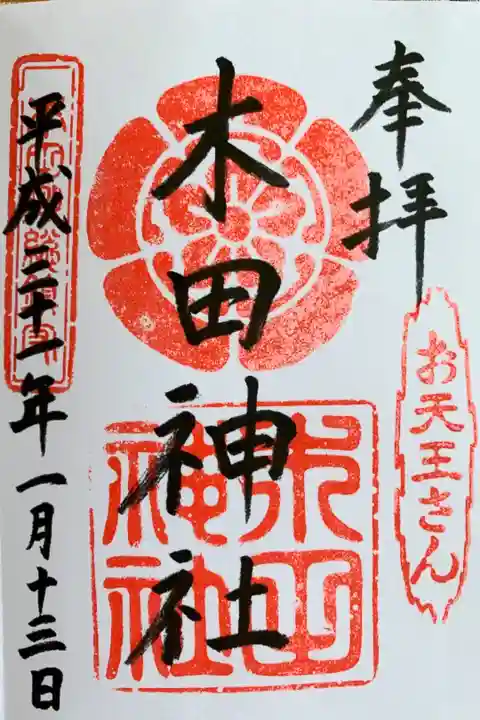 奉拝
お天王さん
木田神社
木田
神社
平成三十一年一月十三日